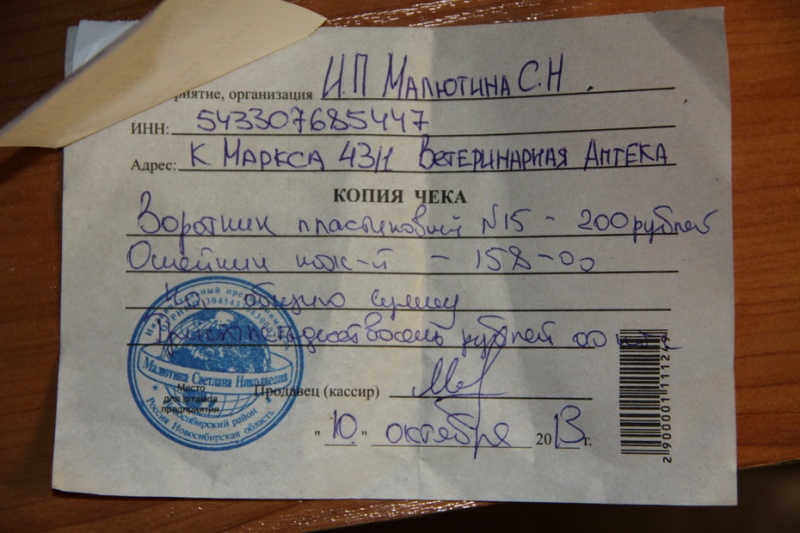 риятие, организация И.П Малютина С.Н.
ИНН: 543307685447
Адрес: К Маркса 43/1 Ветеринарная Аптека
КОПИЯ ЧЕКА
Воротник пластиковый N15 - 200 рублей
Ошейник кож-й - 158-00
На общую сумму
Триста пятьдесят восемь рублей 00 коп
Продавец (кассир)
"10" октября 2013г.
Малютина Светлана Николаевна
Место
для штампа
предприятия
Новосибирский район
Россия Новосибирская область